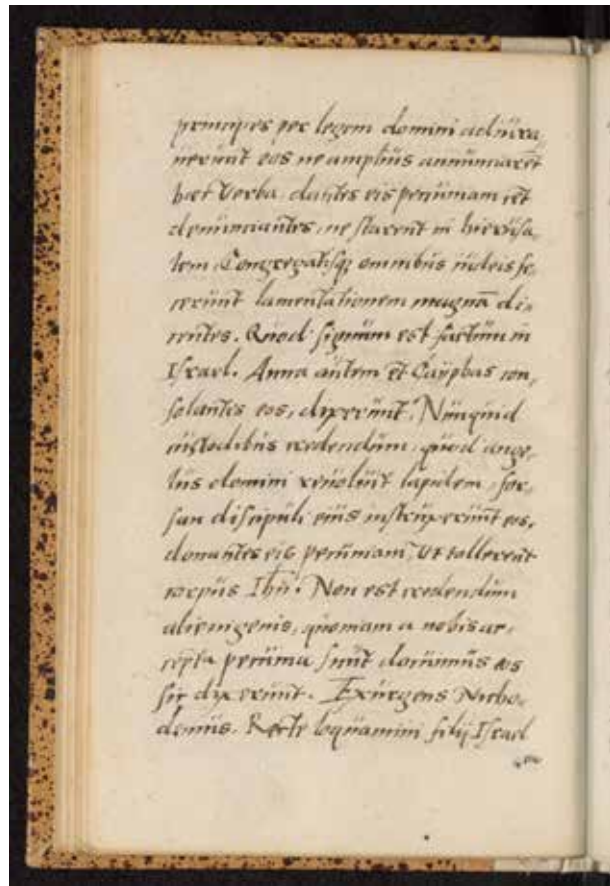 principes per legem domini adiura,
uerunt eos ne amplius annunciarēt
hæc verba, dantes eis pecuniam et
denunciantes, ne starent in hierusa,
lem. Congregatisq; omnibus iudeis fe,
cerunt lamentationem magnā di,
centes. Quod signum est factum in
Israel. Anna autem et Cayphas con,
solantes eos, dixerunt, Nunquid
custodibus credendum, quod ange,
lus domini reuoluit lapidem, for,
san discipuli eius instruxerunt eos,
donantes eis pecuniam, ut tollerent
corpus Ihu. Non est credendum
alienigenis, quoniam a nobis ac,
cepta pecunia sicut docuimus eos
sic dixerunt. Exurgens Nicho,
demus. Recte loquamini filij Israel